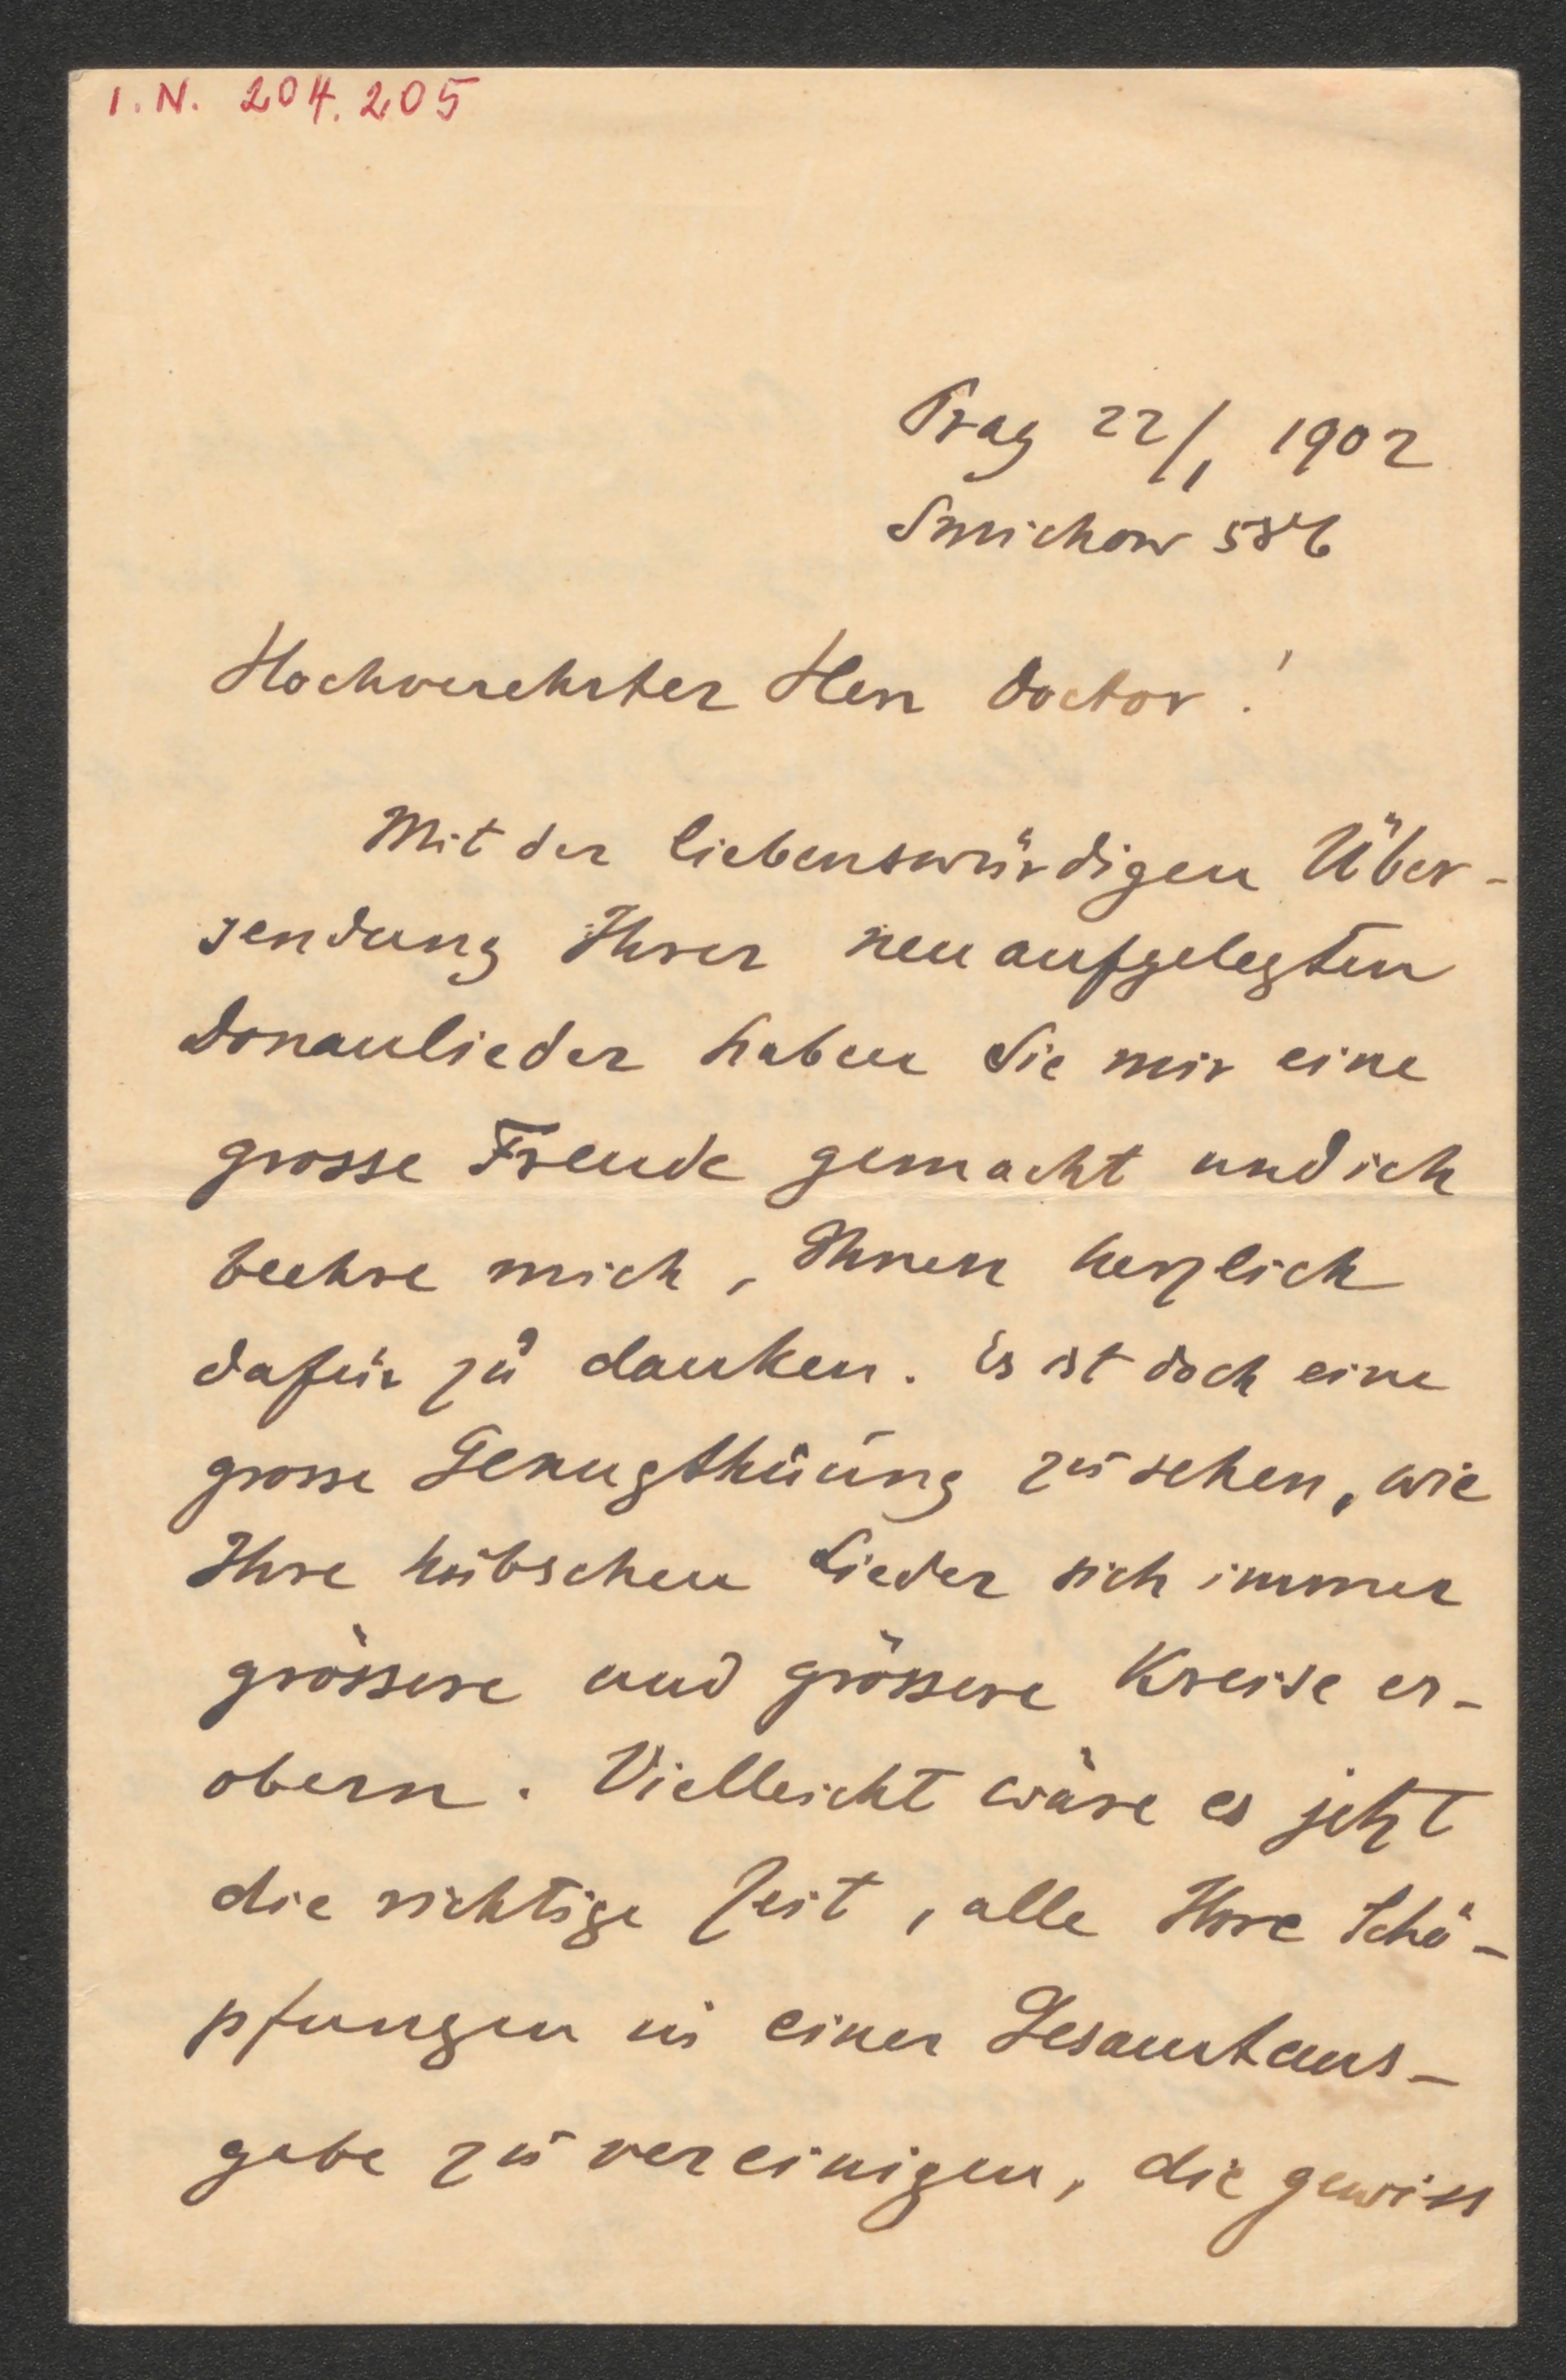 I. N. 204.205
Prag 22/1 1902
Smichow 586
Hochverehrter Herr Doctor!
Mit der liebenswürdigen Über-
sendung Ihrer neuaufgelegten
Donaulieder haben Sie mir eine
grosse Freude gemacht und ich
beehre mich, Ihnen herzlich
dafür zu danken. Es ist doch eine
grosse Genugthuung zu sehen, wie
Ihre hübschen Lieder sich immer
grössere und grössere Kreise er-
obern. Vielleicht wäre es jetzt
die richtige Zeit, alle Ihre Schö-
pfungen in einer Gesamtaus-
gabe zu vereinigen, die gewiss